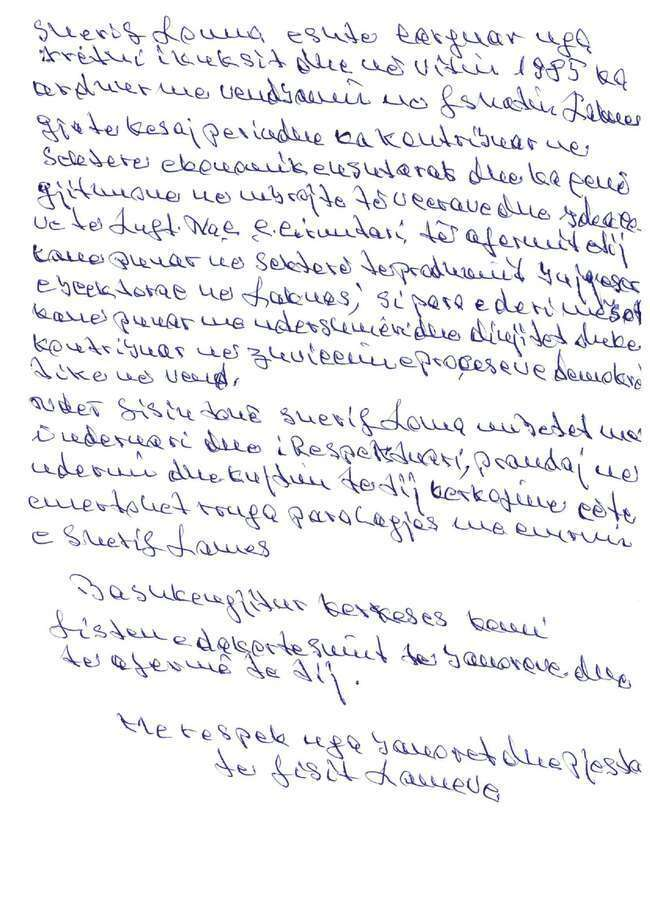 sherif Lama eshte larguar nga
rrethi i kuksit dhe në vitin 1985 ka
ardhur me vendbanim ne fshatin Laknas
gjate kesaj periudhe ka kontribuar ne
sektore ekonomik e ushtarak dhe ka penë
gjithmone ne mbrojte të vlerave dhe
ve te Luft. Nac Clirimtari, të afermit e tij
kane punar ne sektore te prodhimit bujqesor
e blektorale ne Laknas, si para e deri me sot
kane punar me ndershmeri dhe dinjitet duke
kontribuar ne zhvillimin e proçeseve demokra
tike ne vend.
nder fisin tonë sherif Lama mbetet me
i nderuari dhe i Respektuari, prandaj ne
nderim dhe kujtim te tij kerkojme qëte
emertohet rruga para lagjes me emrin
e Sherif Lames
Bashkengjitur kerkeses kemi
listen e dakortesimit te banoreve dhe
te afermë te tij.
Me respek nga banoret dhe pjesta
te fisit Lameve